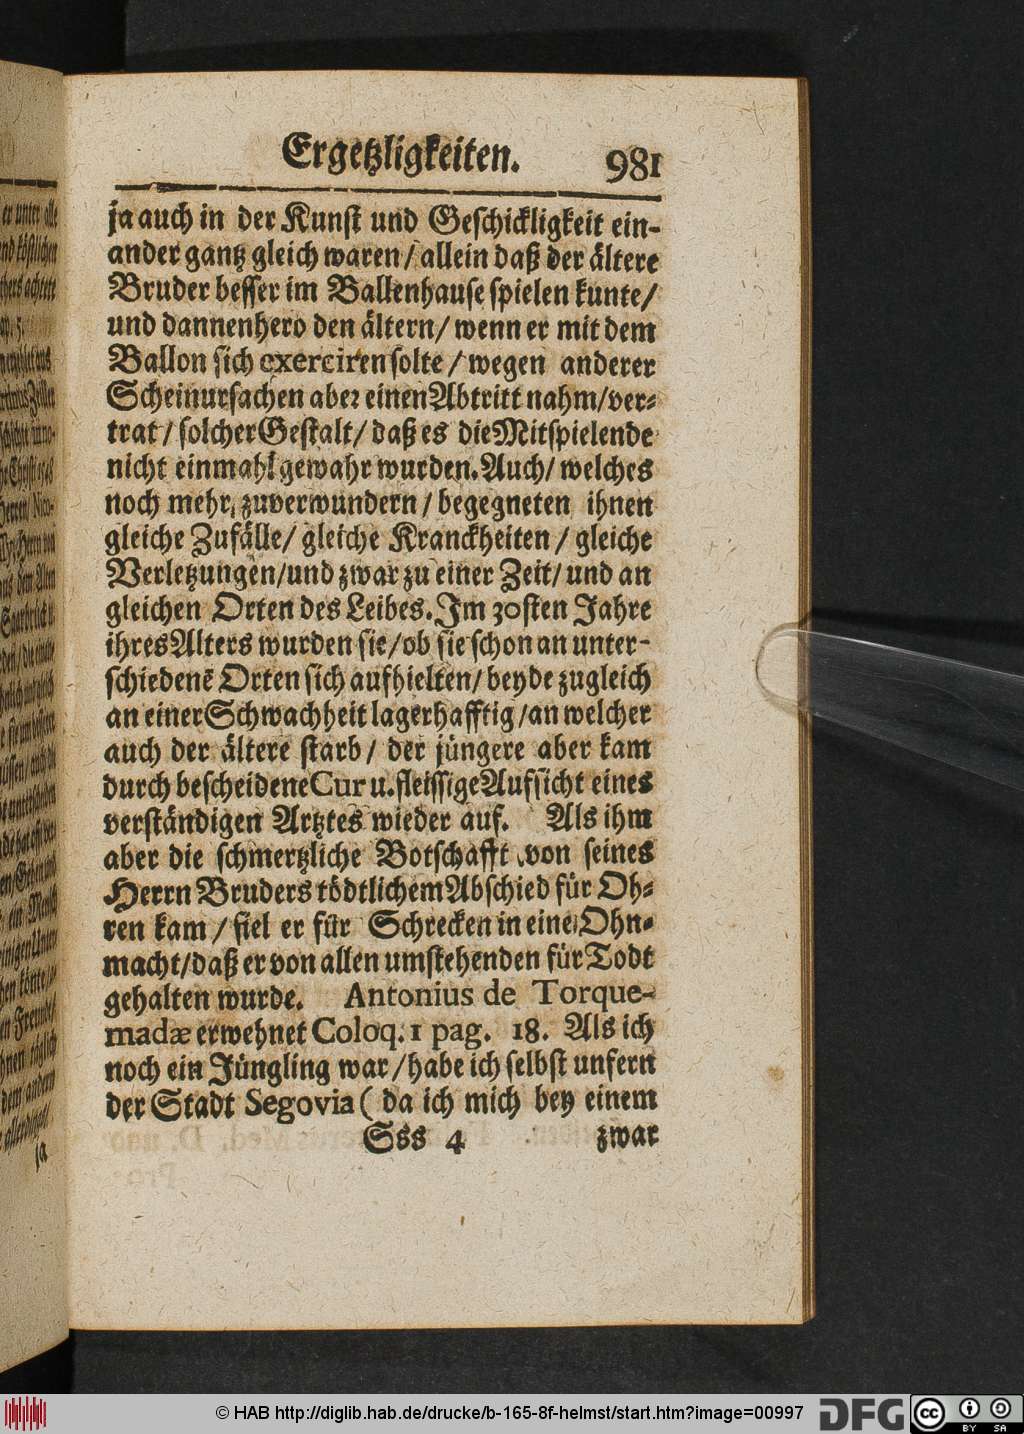 Ergetzligkeiten. 981
ja auch in der Kunst und Geschickligkeit ein-
ander gantz gleich waren / allein daß der ältere
Bruder besser im Ballenhause spielen kunte /
und dannenhero den ältern / wenn er mit dem
Ballon sich exerciren solte / wegen anderer
Scheinursachen aber einen Abtritt nahm / ver-
trat / solcher Gestalt / daß es die Mitspielende
nicht einmahl gewahr wurden. Auch / welches
noch mehr zuverwundern / begegneten ihnen
gleiche Zufälle / gleiche Kranckheiten / gleiche
Verletzungen / und zwar zu einer Zeit / und an
gleichen Orten des Leibes. Im 30sten Jahre
ihres Alters wurden sie / ob sie schon an unter-
schiedenē Orten sich aufhielten / beyde zugleich
an einer Schwachheit lagerhafftig / an welcher
auch der ältere starb / der jüngere aber kam
durch bescheidene Cur u. fleissige Aufsicht eines
verständigen Artztes wieder auf. Als ihm
aber die schmertzliche Botschafft von seines
Herrn Bruders tödtlichem Abschied für Oh-
ren kam / fiel er für Schrecken in eine Ohn-
macht / daß er von allen umstehenden für Todt
gehalten wurde. Antonius de Torque-
madæ erwehnet Coloq. 1 pag. 18. Als ich
noch ein Jüngling war / habe ich selbst unfern
der Stadt Segovia ( da ich mich bey einem
Sss 4 zwar
© HAB http://diglib.hab.de/drucke/b-165-8f-helmst/start.htm?image=00997 DFG cc BY SA